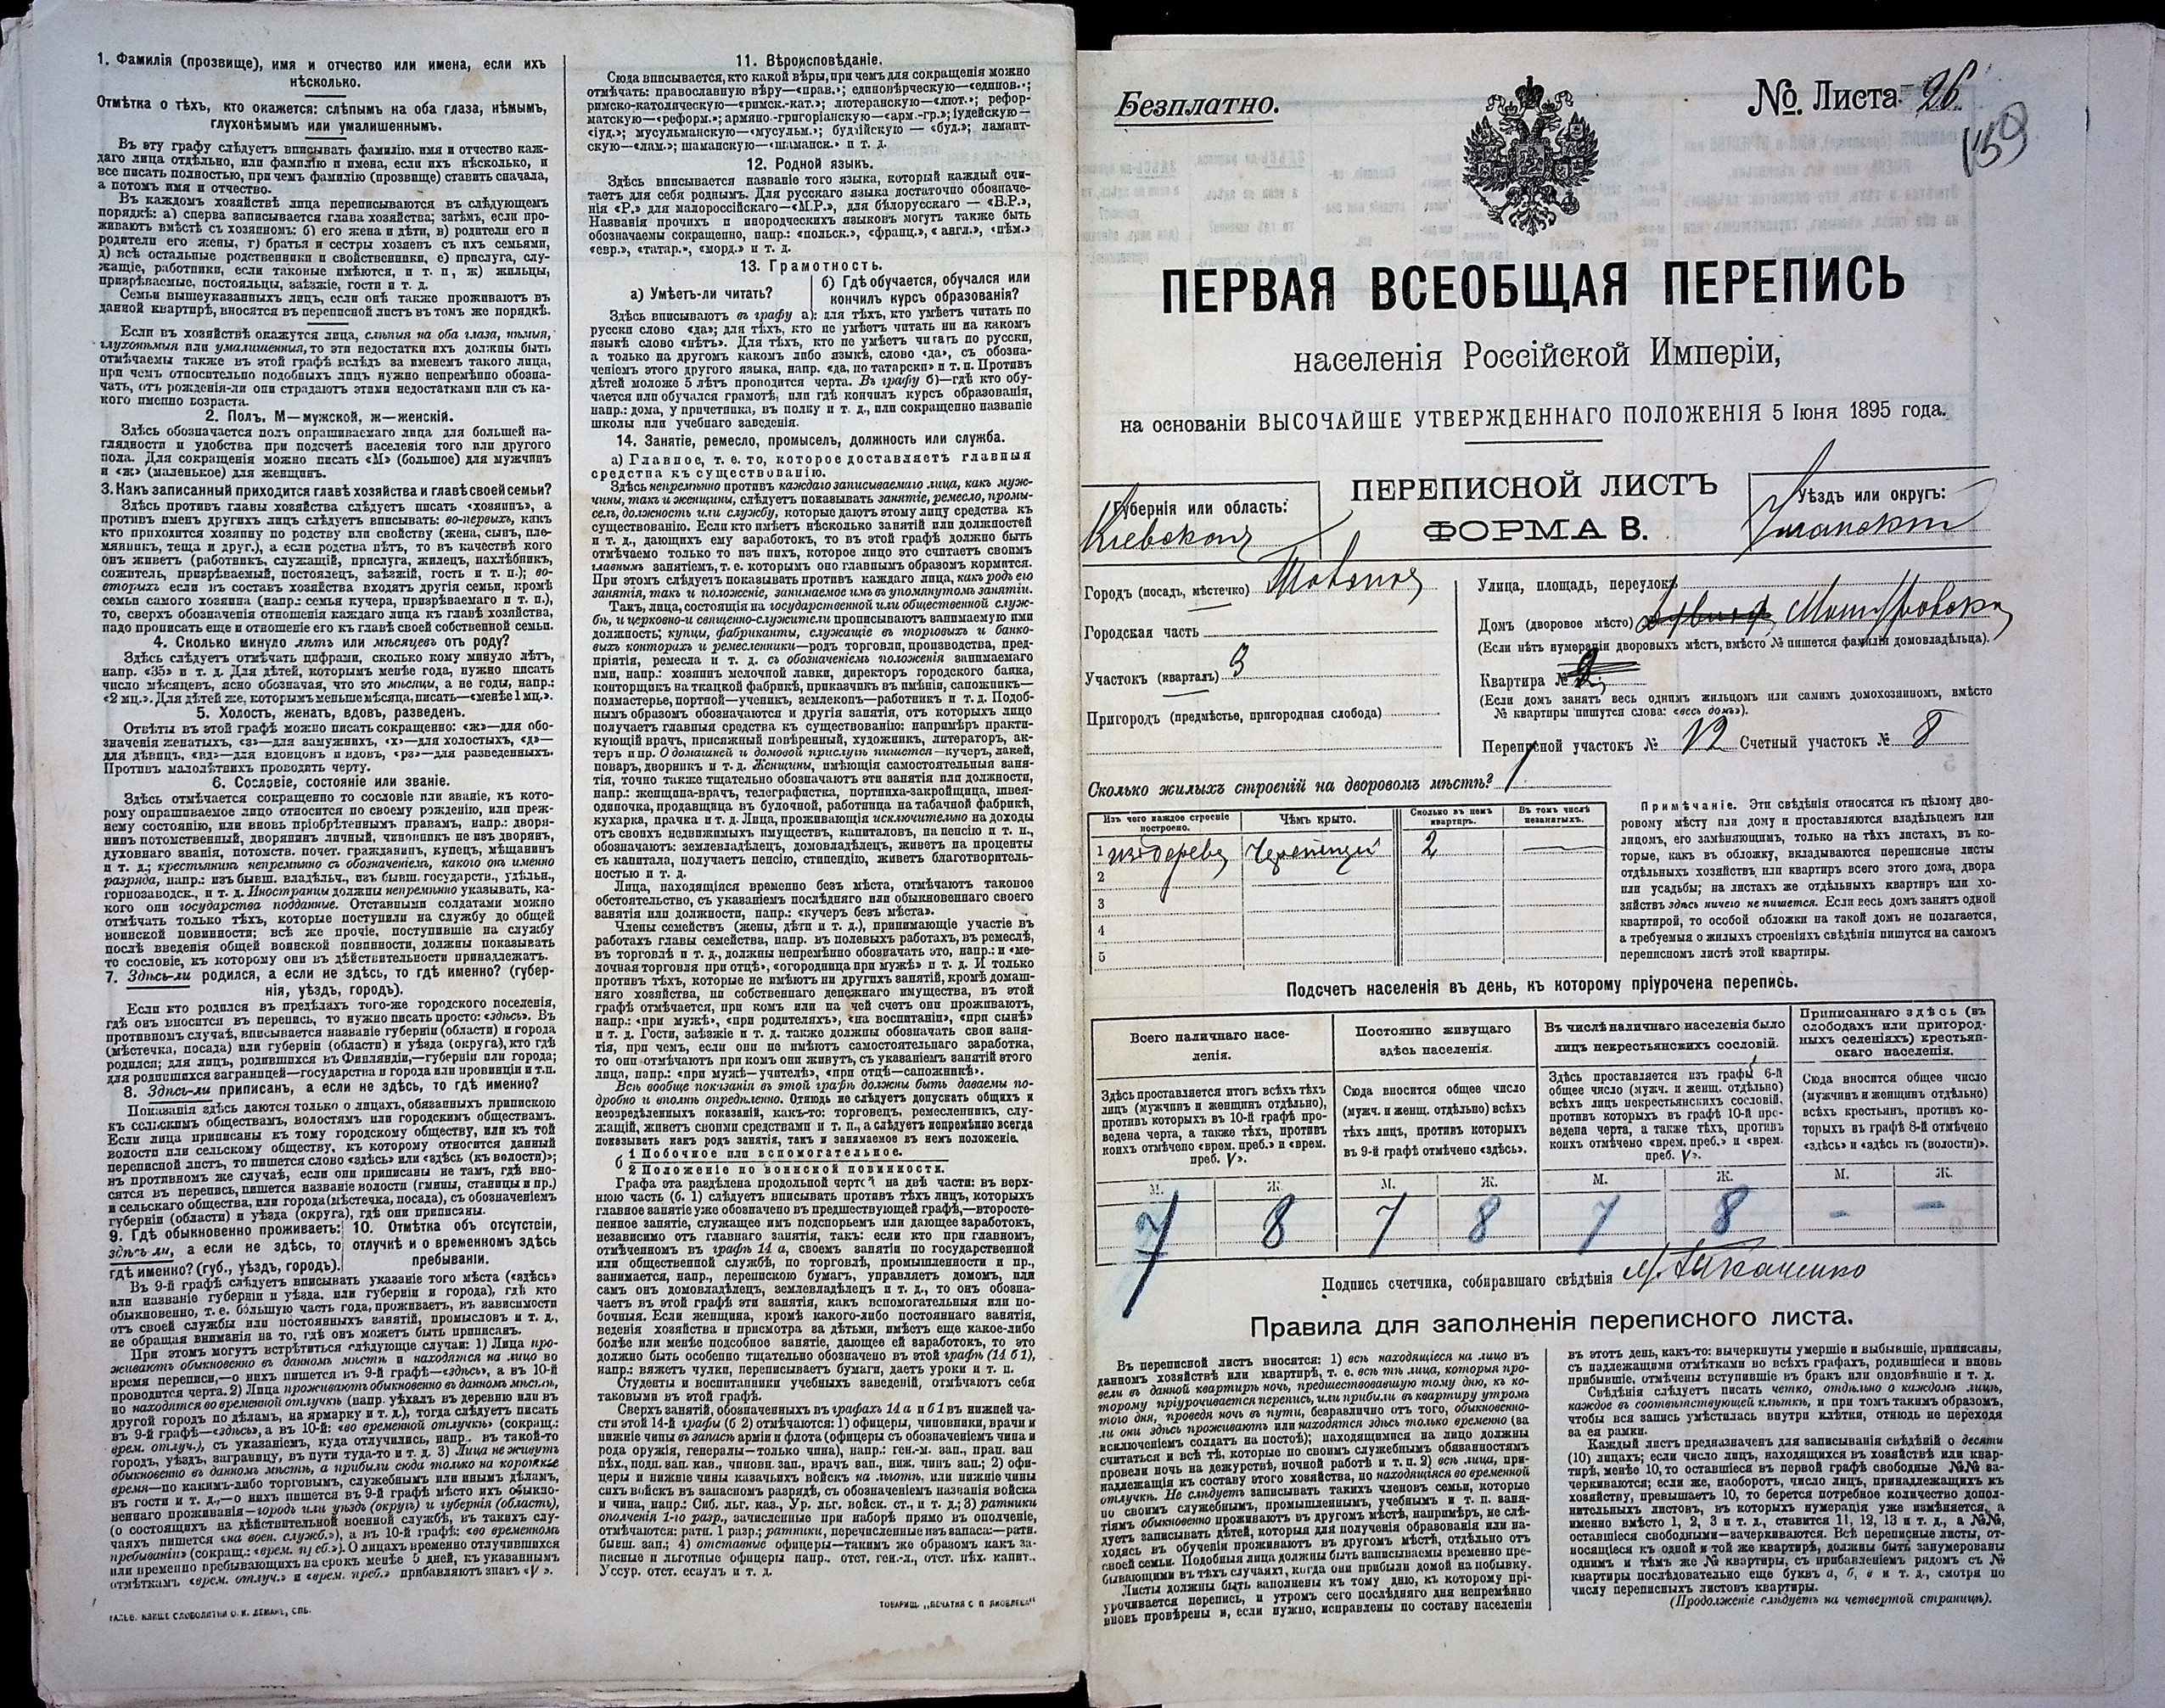 1. Фамилія (прозвище), имя и отчество или имена, если ихъ
нѣсколько.
Отмѣтка о тѣхъ, кто окажется: слѣпымъ на оба глаза, нѣмымъ,
глухонѣмымъ или умалишеннымъ.
Въ эту графу слѣдуетъ вписывать фамилію, имя и отчество каж-
даго лица отдѣльно, или фамилію и имена, если ихъ нѣсколько, и
все писать полностью, при чемъ фамилію (прозвище) ставить сначала,
а потомъ имя и отчество.
Въ каждомъ хозяйствѣ лица переписываются въ слѣдующемъ
порядкѣ: а) сперва записывается глава хозяйства; затѣмъ, если про-
живаютъ вмѣстѣ съ хозяиномъ: б) его жена и дѣти, в) родители его и
родители его жены, г) братья и сестры хозяевъ съ ихъ семьями,
д) всѣ остальные родственники и свойственники, е) прислуга, слу-
жащіе, работники, если таковые имѣются, и т. п., ж) жильцы,
призрѣваемые, постояльцы, заѣзжіе, гости и т. д.
Семьи вышеуказанныхъ лицъ, если онѣ также проживаютъ въ
данной квартирѣ, вносятся въ переписной листъ въ томъ же порядкѣ.
Если въ хозяйствѣ окажутся лица, слѣпыя на оба глаза, нѣмыя,
глухонѣмыя или умалишенныя, то эти недостатки ихъ должны быть
отмѣчаемы также въ этой графѣ вслѣдъ за именемъ такого лица,
при чемъ относительно подобныхъ лицъ нужно непремѣнно обозна-
чать, отъ рожденія-ли они страдаютъ этими недостатками или съ ка-
кого именно возраста.
2. Полъ, М—мужской, ж—женскій.
Здѣсь обозначается полъ опрашиваемаго лица для большей на-
глядности и удобства при подсчетѣ населенія того или другого
пола. Для сокращенія можно писать «М» (большое) для мужчинъ
и «ж» (маленькое) для женщинъ.
3. Какъ записанный приходится главѣ хозяйства и главѣ своей семьи?
Здѣсь противъ главы хозяйства слѣдуетъ писать «хозяинъ», а
противъ именъ другихъ лицъ слѣдуетъ вписывать: во-первыхъ, какъ
кто приходится хозяину по родству или свойству (жена, сынъ, пле-
мянникъ, теща и друг.), а если родства нѣтъ, то въ качествѣ кого
онъ живетъ (работникъ, служащій, прислуга, жилецъ, нахлѣбникъ,
сожитель, призрѣваемый, постоялецъ, заѣзжій, гость и т. п.); во-
вторыхъ если въ составъ хозяйства входятъ другія семьи, кромѣ
семьи самого хозяина (напр.: семья кучера, призрѣваемаго и т. п.),
то, сверхъ обозначенія отношенія каждаго лица къ главѣ хозяйства,
надо прописать еще и отношеніе его къ главѣ своей собственной семьи.
4. Сколько минуло лѣтъ или мѣсяцевъ отъ роду?
Здѣсь слѣдуетъ отмѣчать цифрами, сколько кому минуло лѣтъ,
напр. «35» и т. д. Для дѣтей, которымъ менѣе года, нужно писать
число мѣсяцевъ, ясно обозначая, что это мѣсяцы, а не годы, напр.:
«2 мц.». Для дѣтей же, которымъ меньше мѣсяца, писать—«менѣе 1 мц.».
5. Холостъ, женатъ, вдовъ, разведенъ.
Отвѣты въ этой графѣ можно писать сокращенно: «ж»—для обо-
значенія женатыхъ, «з»—для замужнихъ, «х»—для холостыхъ, «д»—
для дѣвицъ, «вд»—для вдовцовъ и вдовъ, «рз»—для разведенныхъ.
Противъ малолѣтнихъ проводятъ черту.
6. Сословіе, состояніе или званіе.
Здѣсь отмѣчается сокращенно то сословіе или званіе, къ кото-
рому опрашиваемое лицо относится по своему рожденію, или преж-
нему состоянію, или вновь пріобрѣтеннымъ правамъ, напр.: дворя-
нинъ потомственный, дворянинъ личный, чиновникъ не изъ дворянъ,
духовнаго званія, потомств. почет. гражданинъ, купецъ, мѣщанинъ
и т. д.; крестьянинъ непремѣнно съ обозначеніемъ, какого онъ именно
разряда, напр.: изъ бывш. владѣльч., изъ бывш. государств., удѣльн.,
горнозаводск., и т. д. Иностранцы должны непремѣнно указывать, ка-
кого они государства подданные. Отставными солдатами можно
отмѣчать только тѣхъ, которые поступили на службу до общей
воинской повинности; всѣ же прочіе, поступившіе на службу
послѣ введенія общей воинской повинности, должны показывать
то сословіе, къ которому они въ дѣйствительности принадлежатъ.
7. Здѣсь-ли родился, а если не здѣсь, то гдѣ именно? (губер-
нія, уѣздъ, городъ).
Если кто родился въ предѣлахъ того-же городского поселенія,
гдѣ онъ вносится въ перепись, то нужно писать просто: «здѣсь». Въ
противномъ случаѣ, вписывается названіе губерніи (области) и города
(мѣстечка, посада) или губерніи (области) и уѣзда (округа), кто гдѣ
родился; для лицъ, родившихся въ Финляндіи,—губерніи или города;
для родившихся заграницей—государства и города или провинціи и т.п.
8. Здѣсь-ли приписанъ, а если не здѣсь, то гдѣ именно?
Показанія здѣсь даются только о лицахъ, обязанныхъ припискою
къ сельскимъ обществамъ, волостямъ или городскимъ обществамъ.
Если лица приписаны къ тому городскому обществу, или къ той
волости или сельскому обществу, къ которому относится данный
переписной листъ, то пишется слово «здѣсь» или «здѣсь (къ волости)»;
въ противномъ же случаѣ, если они приписаны не тамъ, гдѣ вно-
сятся въ перепись, пишется названіе волости (гмины, станицы и пр.)
и сельскаго общества, или города (мѣстечка, посада), съ обозначеніемъ
губерніи (области) и уѣзда (округа), гдѣ они приписаны.
9. Гдѣ обыкновенно проживаетъ:
здѣсь-ли, а если не здѣсь, то
гдѣ именно? (губ., уѣздъ, городъ).
10. Отмѣтка объ отсутствіи,
отлучкѣ и о временномъ здѣсь
пребываніи.
Въ 9-й графѣ слѣдуетъ вписывать указаніе того мѣста («здѣсь»
или названіе губерніи и уѣзда, или губерніи и города), гдѣ кто
обыкновенно, т. е. бо́льшую часть года, проживаетъ, въ зависимости
отъ своей службы или постоянныхъ занятій, промысловъ и т. д.,
не обращая вниманія на то, гдѣ онъ можетъ быть приписанъ.
При этомъ могутъ встрѣтиться слѣдующіе случаи: 1) Лица про-
живаютъ обыкновенно въ данномъ мѣстѣ и находятся на лицо во
время переписи,—о нихъ пишется въ 9-й графѣ—«здѣсь», а въ 10-й
проводится черта. 2) Лица проживаютъ обыкновенно въ данномъ мѣстѣ,
но находятся во временной отлучкѣ (напр. уѣхалъ въ деревню или въ
другой городъ по дѣламъ, на ярмарку и т. д.), тогда слѣдуетъ писать
въ 9-й графѣ—«здѣсь», а въ 10-й: «во временной отлучкѣ» (сокращ.:
врем. отлуч.), съ указаніемъ, куда отлучились, напр.. въ такой-то
городъ, уѣздъ, заграницу, въ пути туда-то и т. д. 3) Лица не живутъ
обыкновенно въ данномъ мѣстѣ, а прибыли сюда только на короткое
время—по какимъ-либо торговымъ, служебнымъ или инымъ дѣламъ,
въ гости и т. д.,—о нихъ пишется въ 9-й графѣ мѣсто ихъ обыкно-
веннаго проживанія—городъ или уѣздъ (округъ) и губернія (область),
(о состоящихъ на дѣйствительной военной службѣ, въ такихъ слу-
чаяхъ пишется «на воен. служб.»), а въ 10-й графѣ: «во временномъ
пребываніи» (сокращ.: «врем. преб.»). О лицахъ временно отлучившихся
или временно пребывающихъ на срокъ менѣе 5 дней, къ указаннымъ
отмѣткамъ «врем. отлуч.» и «врем. преб.» прибавляютъ знакъ «V».
11. Вѣроисповѣданіе.
Сюда вписывается, кто какой вѣры, при чемъ для сокращенія можно
отмѣчать: православную вѣру—«прав.»; единовѣрческую—«единов.»;
римско-католическую—«римск.-кат.»; лютеранскую—«лют.»; рефор-
матскую—«реформ.»; армяно-григоріанскую—«арм.-гр.»; іудейскую—
«іуд.»; мусульманскую—«мусульм.»; буддійскую — «буд.»; ламаит-
скую—«лам.»; шаманскую—«шаманск.» и т. д.
12. Родной языкъ.
Здѣсь вписывается названіе того языка, который каждый счи-
таетъ для себя роднымъ. Для русскаго языка достаточно обозначе-
нія «Р.» для малороссійскаго—«М.Р.», для бѣлорусскаго — «Б.Р.»,
Названія прочихъ и инородческихъ языковъ могутъ также быть
обозначаемы сокращенно, напр.: «польск.», «франц.», «англ.», «нѣм.»
«евр.», «татар.», «морд.» и т. д.
13. Грамотность.
а) Умѣетъ-ли читать?
б) Гдѣ обучается, обучался или
кончилъ курсъ образованія?
Здѣсь вписываютъ въ графу а): для тѣхъ, кто умѣетъ читать по
русски слово «да»; для тѣхъ, кто не умѣетъ читать ни на какомъ
языкѣ слово «нѣтъ». Для тѣхъ, кто не умѣетъ читать по русски,
а только на другомъ какомъ либо языкѣ, слово «да», съ обозна-
ченіемъ этого другого языка, напр. «да, по татарски» и т. п. Противъ
дѣтей моложе 5 лѣтъ проводится черта. Въ графу б)—гдѣ кто обу-
чается или обучался грамотѣ, или гдѣ кончилъ курсъ образованія,
напр.: дома, у причетника, въ полку и т. д., или сокращенно названіе
школы или учебнаго заведенія.
14. Занятіе, ремесло, промыселъ, должность или служба.
а) Главное, т. е. то, которое доставляетъ главныя
средства къ существованію.
Здѣсь непремѣнно противъ каждаго записываемаго лица, какъ муж-
чины, такъ и женщины, слѣдуетъ показывать занятіе, ремесло, промы-
селъ, должность или службу, которые даютъ этому лицу средства къ
существованію. Если кто имѣетъ нѣсколько занятій или должностей
и т. д., дающихъ ему заработокъ, то въ этой графѣ должно быть
отмѣчаемо только то изъ нихъ, которое лицо это считаетъ своимъ
главнымъ занятіемъ, т. е. которымъ оно главнымъ образомъ кормится.
При этомъ слѣдуетъ показывать противъ каждаго лица, какъ родъ его
занятія, такъ и положеніе, занимаемое имъ въ упомянутомъ занятіи.
Такъ, лица, состоящія на государственной или общественной служ-
бѣ, и церковно-и священно-служители прописываютъ занимаемую ими
должность; купцы, фабриканты, служащіе въ торговыхъ и банко-
выхъ конторахъ и ремесленники—родъ торговли, производства, пред-
пріятія, ремесла и т. д. съ обозначеніемъ положенія занимаемаго
ими, напр.: хозяинъ мелочной лавки, директоръ городского банка,
конторщикъ на ткацкой фабрикѣ, приказчикъ въ имѣніи, сапожникъ—
подмастерье, портной—ученикъ, землекопъ—работникъ и т. д. Подоб-
нымъ образомъ обозначаются и другія занятія, отъ которыхъ лицо
получаетъ главныя средства къ существованію: напримѣръ практи-
кующій врачъ, присяжный повѣренный, художникъ, литераторъ, ак-
теръ и пр. О домашней и домовой прислугѣ пишется—кучеръ, лакей,
поваръ, дворникъ и т. д. Женщины, имѣющія самостоятельныя заня-
тія, точно также тщательно обозначаютъ эти занятія или должности,
напр.: женщина-врачъ, телеграфистка, портниха-закройщица, швея-
одиночка, продавщица въ булочной, работница на табачной фабрикѣ,
кухарка, прачка и т. д. Лица, проживающія исключительно на доходы
отъ своихъ недвижимыхъ имуществъ, капиталовъ, на пенсію и т. п.,
обозначаютъ: землевладѣлецъ, домовладѣлецъ, живетъ на проценты
съ капитала, получаетъ пенсію, стипендію, живетъ благотворитель-
ностью и т. д.
Лица, находящіяся временно безъ мѣста, отмѣчаютъ таковое
обстоятельство, съ указаніемъ послѣдняго или обыкновеннаго своего
занятія или должности, напр.: «кучеръ безъ мѣста».
Члены семействъ (жены, дѣти и т. д.), принимающіе участіе въ
работахъ главы семейства, напр. въ полевыхъ работахъ, въ ремеслѣ,
въ торговлѣ и т. д., должны непремѣнно обозначать это, напр.: и «ме-
лочная торговля при отцѣ», «огородница при мужѣ» и т. д. И только
противъ тѣхъ, которые не имѣютъ ни другихъ занятій, кромѣ домаш-
няго хозяйства, ни собственнаго денежнаго имущества, въ этой
графѣ отмѣчается, при комъ или на чей счетъ они проживаютъ,
напр.: «при мужѣ», «при родителяхъ», «на воспитаніи», «при сынѣ»
и т. д. Гости, заѣзжіе и т. д. также должны обозначать свои заня-
тія, при чемъ, если они не имѣютъ самостоятельнаго заработка,
то они отмѣчаютъ при комъ они живутъ, съ указаніемъ занятій этого
лица, напр.: «при мужѣ—учителѣ», «при отцѣ—сапожникѣ».
Всѣ вообще показанія въ этой графѣ должны быть даваемы по-
дробно и вполнѣ опредѣленно. Отнюдь не слѣдуетъ допускать общихъ и
неопредѣленныхъ показаній, какъ-то: торговецъ, ремесленникъ, слу-
жащій, живетъ своими средствами и т. п., а слѣдуетъ непремѣнно всегда
показывать какъ родъ занятія, такъ и занимаемое въ немъ положеніе.
б 1 Побочное или вспомогательное.
2 Положеніе по воинской повинности.
Графа эта раздѣлена продольной чертой на двѣ части: въ верх-
нюю часть (б. 1) слѣдуетъ вписывать противъ тѣхъ лицъ, которыхъ
главное занятіе уже обозначено въ предшествующей графѣ,—второсте-
пенное занятіе, служащее имъ подспорьемъ или дающее заработокъ,
независимо отъ главнаго занятія, такъ: если кто при главномъ,
отмѣченномъ въ графѣ 14 а, своемъ занятіи по государственной
или общественной службѣ, по торговлѣ, промышленности и пр.,
занимается, напр., перепискою бумагъ, управляетъ домомъ, или
самъ онъ домовладѣлецъ, землевладѣлецъ и т. д., то онъ обозна-
чаетъ въ этой графѣ эти занятія, какъ вспомогательныя или по-
бочныя. Если женщина, кромѣ какого-либо постояннаго занятія,
веденія хозяйства и присмотра за дѣтьми, имѣетъ еще какое-либо
болѣе или менѣе подсобное занятіе, дающее ей заработокъ, то это
должно быть особенно тщательно обозначено въ этой графѣ (14 б 1),
напр.: вяжетъ чулки, переписываетъ бумаги, даетъ уроки и т. п.
Студенты и воспитанники учебныхъ заведеній, отмѣчаютъ себя
таковыми въ этой графѣ.
Сверхъ занятій, обозначенныхъ въ графахъ 14 а и б 1 въ нижней ча-
сти этой 14-й графы (б 2) отмѣчаются: 1) офицеры, чиновники, врачи и
нижніе чины въ запасѣ арміи и флота (офицеры съ обозначеніемъ чина и
рода оружія, генералы—только чина), напр.: ген.-м. зап., прап. зап
пѣх., подп. зап. кав., чиновн. зап., врачъ зап., ниж. чинъ зап.; 2) офи-
церы и нижніе чины казачьихъ войскъ на льготѣ, или нижніе чины
сихъ войскъ въ запасномъ разрядѣ, съ обозначеніемъ названія войска
и чина, напр.: Сиб. льг. каз., Ур. льг. войск. ст., и т. д.; 3) ратники
ополченія 1-го разр., зачисленные при наборѣ прямо въ ополченіе,
отмѣчаются: ратн. 1 разр.; ратники, перечисленные изъ запаса:—ратн.
бывш. зап.; 4) отставные офицеры—такимъ же образомъ какъ за-
пасные и льготные офицеры напр., отст. ген.-л., отст. пѣх. капит.,
Уссур. отст. есаулъ и т. д.
ТОВАРИЩ. „ПЕЧАТНЯ С. П. ЯКОВЛЕВА“
Безплатно.
№ Листа 26
159
ПЕРВАЯ ВСЕОБЩАЯ ПЕРЕПИСЬ
населенія Россійской Имперіи,
на основаніи ВЫСОЧАЙШЕ УТВЕРЖДЕННАГО ПОЛОЖЕНІЯ 5 Іюня 1895 года.
ПЕРЕПИСНОЙ ЛИСТЪ
ФОРМА В.
Губернія или область:
Кіевская
Уѣздъ или округъ:
Уманскій
Городъ (посадъ, мѣстечко)
Городская часть
Участокъ (кварталъ) 3
Пригородъ (предмѣстье, пригородная слобода)
Улица, площадь, переулокъ
Домъ (дворовое мѣсто)
(Если нѣтъ нумераціи дворовыхъ мѣстъ, вмѣсто № пишется фамилія домовладѣльца).
Квартира № 2
(Если домъ занятъ весь однимъ жильцомъ или самимъ домохозяиномъ, вмѣсто
№ квартиры пишутся слова: «весь домъ»).
Переписной участокъ № 12 Счетный участокъ № 8
Сколько жилыхъ строеній на дворовомъ мѣстѣ? 1
Изъ чего каждое строеніе построено.
Чѣмъ крыто.
Сколько въ немъ квартиръ.
Въ томъ числѣ незанятыхъ.
1 изъ дерева 2 —
2
3
4
5
Примѣчаніе. Эти свѣдѣнія относятся къ цѣлому дво-
ровому мѣсту или дому и проставляются владѣльцемъ или
лицомъ, его замѣняющимъ, только на тѣхъ листахъ, въ ко-
торые, какъ въ обложку, вкладываются переписные листы
отдѣльныхъ хозяйствъ или квартиръ всего этого дома, двора
или усадьбы; на листахъ же отдѣльныхъ квартиръ или хо-
зяйствъ здѣсь ничего не пишется. Если весь домъ занятъ одной
квартирой, то особой обложки на такой домъ не полагается,
а требуемыя о жилыхъ строеніяхъ свѣдѣнія пишутся на самомъ
переписномъ листѣ этой квартиры.
Подсчетъ населенія въ день, къ которому пріурочена перепись.
Всего наличнаго насе-
ленія.
Постоянно живущаго
здѣсь населенія.
Въ числѣ наличнаго населенія было
лицъ некрестьянскихъ сословій.
Приписаннаго здѣсь (въ
слободахъ или пригород-
ныхъ селеніяхъ) крестьян-
скаго населенія.
Здѣсь проставляется итогъ всѣхъ тѣхъ
лицъ (мужчинъ и женщинъ отдѣльно),
противъ которыхъ въ 10-й графѣ про-
ведена черта, а также тѣхъ, противъ
коихъ отмѣчено «врем. преб.» и «врем.
преб. V».
Сюда вносится общее число
(мужч. и женщ. отдѣльно) всѣхъ
тѣхъ лицъ, противъ которыхъ
въ 9-й графѣ отмѣчено «здѣсь».
Здѣсь проставляется изъ графы 6-й
общее число (мужч. и женщ. отдѣльно)
всѣхъ лицъ некрестьянскихъ сословій,
противъ которыхъ въ графѣ 10-й про-
ведена черта, а также тѣхъ, противъ
коихъ отмѣчено «врем. преб.» и «врем.
преб. V».
Сюда вносится общее число
(мужчинъ и женщинъ отдѣльно)
всѣхъ крестьянъ, противъ ко-
торыхъ въ графѣ 8-й отмѣчено
«здѣсь» и «здѣсь къ (волости)».
М. Ж. М. Ж. М. Ж. М. Ж.
7 8 7 8 7 8 - -
Подпись счетчика, собиравшаго свѣдѣнія М. Ткаченко
Правила для заполненія переписного листа.
Въ переписной листъ вносятся: 1) всѣ находящіеся на лицо въ
данномъ хозяйствѣ или квартирѣ, т. е. всѣ тѣ лица, которыя про-
вели въ данной квартирѣ ночь, предшествовавшую тому дню, къ ко-
торому пріурочивается перепись, или прибыли въ квартиру утромъ
того дня, проведя ночь въ пути, безразлично отъ того, обыкновенно-
ли они здѣсь проживаютъ или находятся здѣсь только временно (за
исключеніемъ солдатъ на постоѣ); находящимися на лицо должны
считаться и всѣ тѣ, которые по своимъ служебнымъ обязанностямъ
провели ночь на дежурствѣ, ночной работѣ и т. п. 2) всѣ лица, при-
надлежащія къ составу этого хозяйства, но находящіяся во временной
отлучкѣ. Не слѣдуетъ записывать такихъ членовъ семьи, которые
по своимъ служебнымъ, промышленнымъ, учебнымъ и т. п. заня-
тіямъ обыкновенно проживаютъ въ другомъ мѣстѣ, напримѣръ, не слѣ-
дуетъ записывать дѣтей, которыя для полученія образованія или на-
ходясь въ обученіи проживаютъ въ другомъ мѣстѣ, отдѣльно отъ
своей семьи. Подобныя лица должны быть записываемы временно пре-
бывающими въ тѣхъ случаяхъ, когда они прибыли домой на побывку.
Листы должны быть заполнены къ тому дню, къ которому прі-
урочивается перепись, и утромъ сего послѣдняго дня непремѣнно
вновь провѣрены и, если нужно, исправлены по составу населенія
въ этотъ день, какъ-то: вычеркнуты умершіе и выбывшіе, приписаны,
съ надлежащими отмѣтками во всѣхъ графахъ, родившіеся и вновь
прибывшіе, отмѣчены вступившіе въ бракъ или овдовѣвшіе и т. д.
Свѣдѣнія слѣдуетъ писать четко, отдѣльно о каждомъ лицѣ,
каждое въ соотвѣтствующей клѣткѣ, и при томъ такимъ образомъ,
чтобы вся запись умѣстилась внутри клѣтки, отнюдь не переходя
за ея рамки.
Каждый листъ предназначенъ для записыванія свѣдѣній о десяти
(10) лицахъ; если число лицъ, находящихся въ хозяйствѣ или квар-
тирѣ, менѣе 10, то оставшіеся въ первой графѣ свободные №№ за-
черкиваются; если же, наоборотъ, число лицъ, принадлежащихъ къ
хозяйству, превышаетъ 10, то берется потребное количество допол-
нительныхъ листовъ, въ которыхъ нумерація уже измѣняется, а
именно вмѣсто 1, 2, 3 и т. д., ставится 11, 12, 13 и т. д., а №№,
оставшіеся свободными—зачеркиваются. Всѣ переписные листы, от-
носящіеся къ одной и той же квартирѣ, должны быть занумерованы
однимъ и тѣмъ же № квартиры, съ прибавленіемъ рядомъ съ №
квартиры послѣдовательно еще буквъ а, б, в и т. д., смотря по
числу переписныхъ листовъ квартиры.
(Продолженіе слѣдуетъ на четвертой страницѣ).